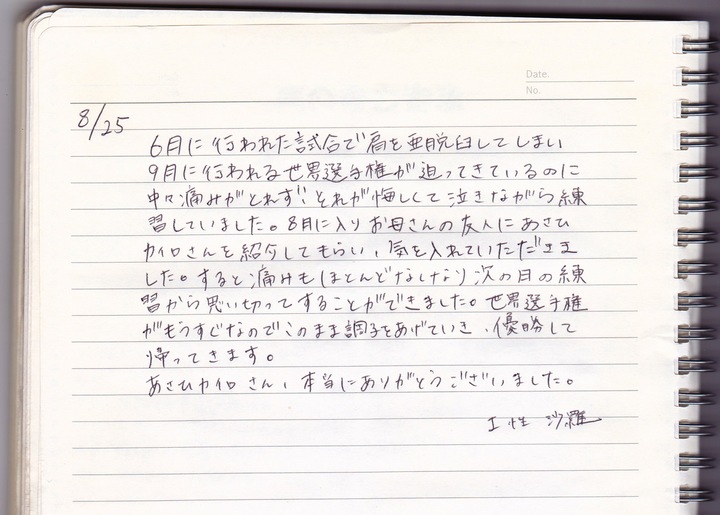 Date.
No.
8/25
6月に行われた試合で肩を亜脱臼してしまい
9月に行われる世界選手権が迫ってきているのに
中々痛みがとれず、それが悔しくて泣きながら練
習していました。8月に入りお母さんの友人にあさひ
カイロさんを紹介してもらい、気を入れていただきま
した。すると痛みもほとんどなくなり次の日の練
習から思い切ってすることができました。世界選手権
がもうすぐなのでこのまま調子をあげていき、優勝して
帰ってきます。
あさひカイロさん、本当にありがとうございました。
沙羅